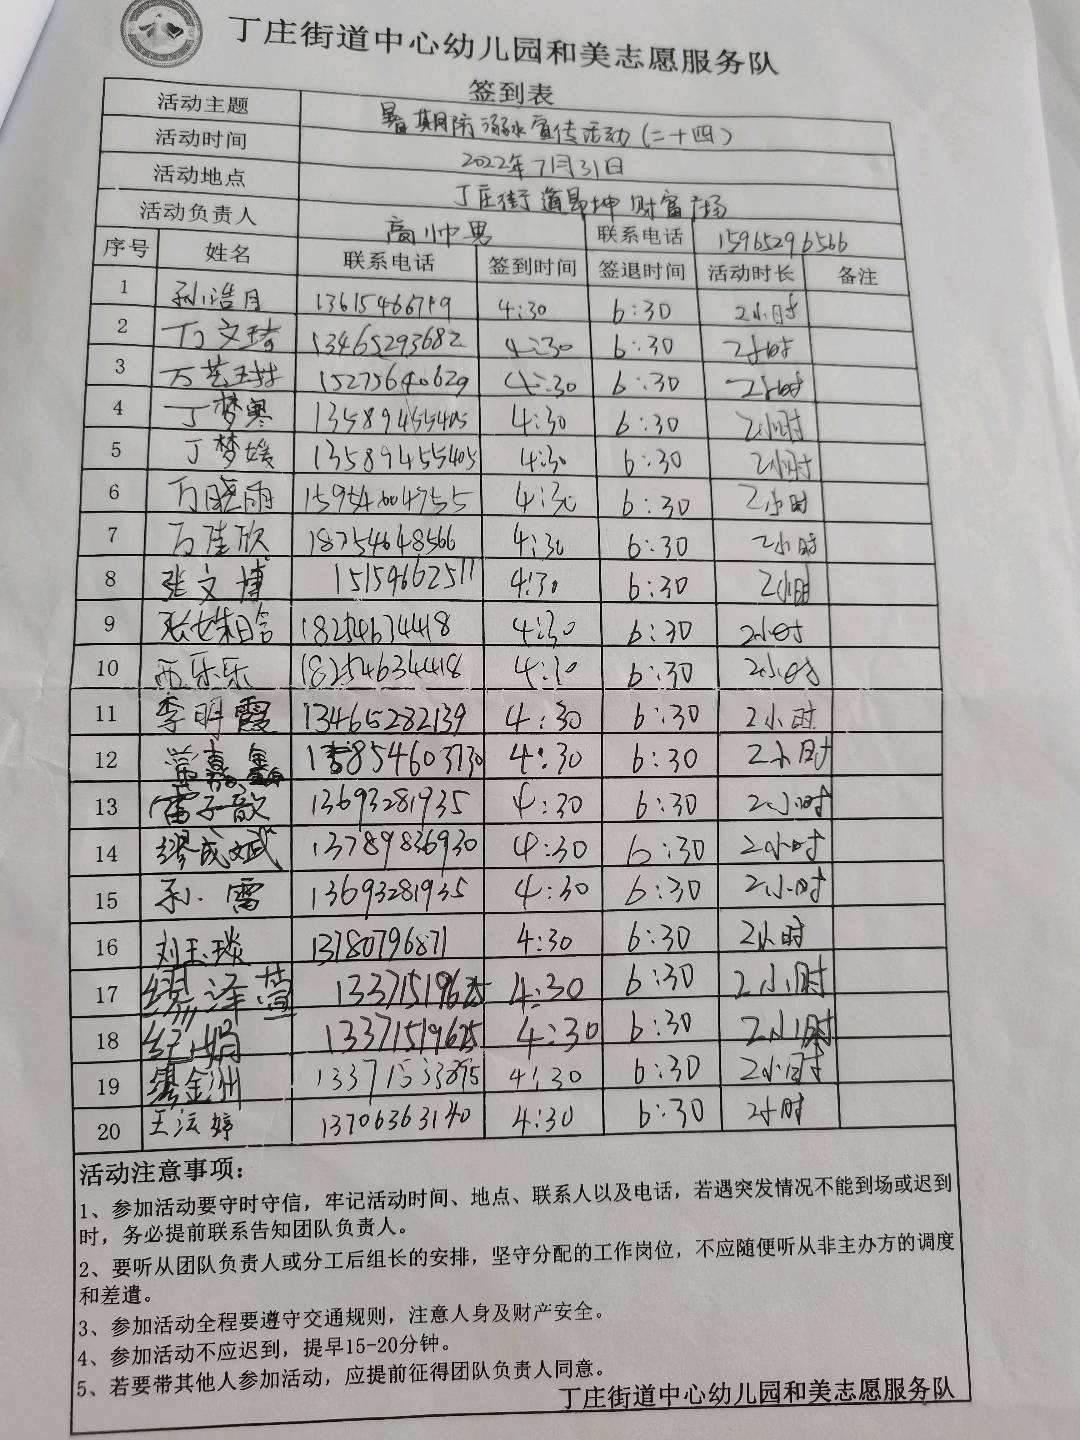 丁庄街道中心幼儿园和美志愿服务队
签到表
活动主题 暑期防溺水宣传活动(二十四)
活动时间 2022年7月31日
活动地点 丁庄街道昂坤财富广场
活动负责人 高帅男 联系电话 15965296566
序号 姓名 联系电话 签到时间 签退时间 活动时长 备注
1 孙浩月 13615466719 4:30 6:30 2小时
2 万文琦 13465293682 4:30 6:30 2小时
3 万艺琳 15275640629 4:30 6:30 2小时
4 丁梦寒 13589455405 4:30 6:30 2小时
5 丁梦媛 13589455405 4:30 6:30 2小时
6 万晓雨 15954004755 4:30 6:30 2小时
7 万佳欣 18754648566 4:30 6:30 2小时
8 张文博 15159662511 4:30 6:30 2小时
9 18254634418 4:30 6:30 2小时
10 西乐乐 18254634418 4:30 6:30 2小时
11 李明霞 13465282139 4:30 6:30 2小时
12 4:30 6:30 2小时
13 雷子歆 13693281935 4:30 6:30 2小时
14 缪成斌 13789836930 4:30 6:30 2小时
15 孙小雷 13693281935 4:30 6:30 2小时
16 刘玉琰 13780796871 4:30 6:30 2小时
17 缪泽萱 13371519625 4:30 6:30 2小时
18 纪娟 13371519625 4:30 6:30 2小时
19 金洲 4:30 6:30 2小时
20 王法婷 13706363140 4:30 6:30 2小时
活动注意事项：
1、参加活动要守时守信，牢记活动时间、地点、联系人以及电话，若遇突发情况不能到场或迟到
时，务必提前联系告知团队负责人。
2、要听从团队负责人或分工后组长的安排，坚守分配的工作岗位，不应随便听从非主办方的调度
和差遣。
3、参加活动全程要遵守交通规则，注意人身及财产安全。
4、参加活动不应迟到，提早15-20分钟。
5、若要带其他人参加活动，应提前征得团队负责人同意。
丁庄街道中心幼儿园和美志愿服务队